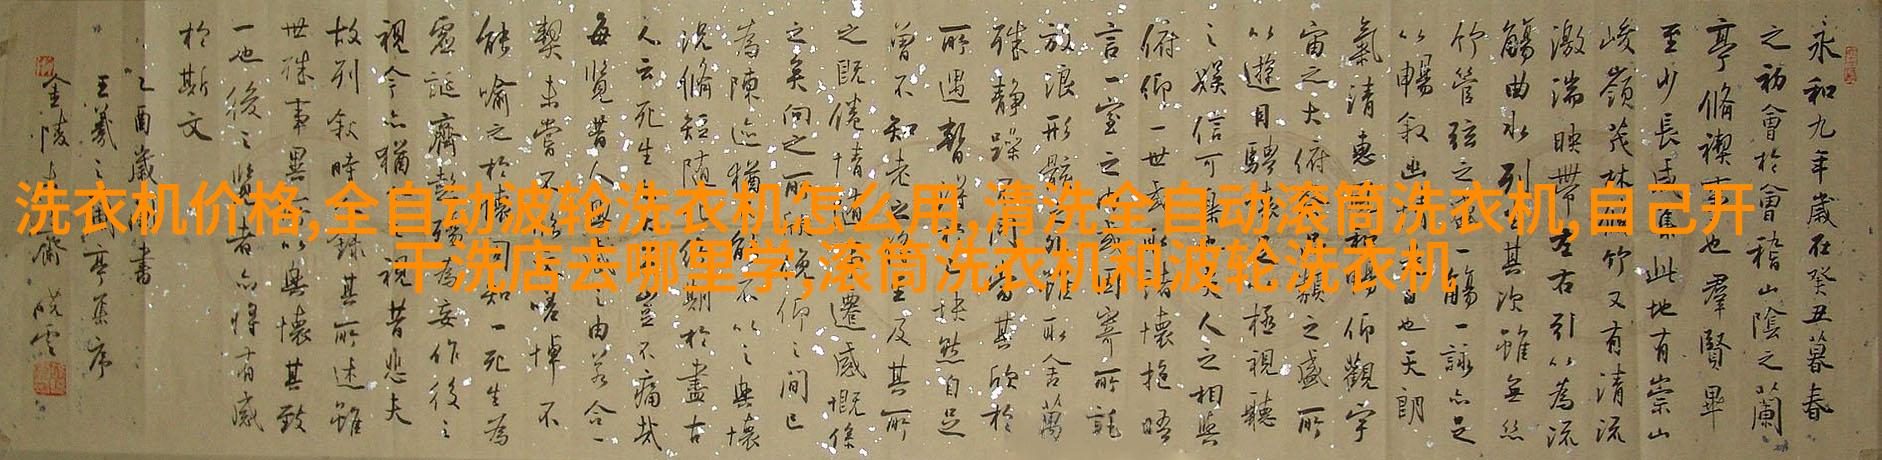 洗衣机价格,全自动波轮洗衣机怎么用,清洗全自动滚筒洗衣机,自己开
干洗店去哪里学,滚筒洗衣机和波轮洗衣机
永和九年歲在癸丑暮春
之初會於會稽山陰之蘭
亭脩禊事也羣賢畢
至少長咸集此地有崇山
峻嶺茂林脩竹又有清流
激湍映帶左右引以為流
觴曲水列坐其次雖無絲
竹管弦之盛一觴一詠亦足
以暢敘幽情是日也天朗
氣清惠風和暢仰觀宇
宙之大俯察品類之盛所
以遊目騁懷足以極視聽
之娛信可樂也夫人之相與
俯仰一世或取諸懷抱晤
言一室之內或因寄所託
放浪形骸之外雖取舍萬
殊靜躁不同當其欣於
所遇暫得於己快然自足
曾不知老之將至及其所
之既倦情隨事遷感慨係
之矣向之所欣俛仰之間已
為陳迹猶不能不以之興懷
況脩短隨化終期於盡古
人云死生亦大矣豈不痛哉
每覽昔人興感之由若合一
契未嘗不臨文嗟悼不
能喻之於懷固知一死生為
虛誕齊彭殤為妄作後之
視今亦猶今之視昔悲夫
故列敘時人錄其所述雖
世殊事異所以興懷其致
一也後之覽者亦將有感
於斯文
乙酉歲書
王羲之蘭亭集序
金陵